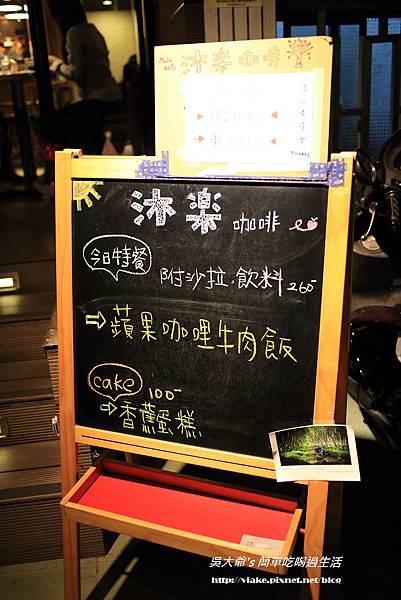 沐楽咖啡
沐楽 咖啡
今日特餐
附沙拉.飲料 260-
⇒蘋果咖哩牛肉飯
cake 100-
⇒香蕉蛋糕
吳大爺's 簡單吃喝過生活
http://viake.pixnet.net/blog